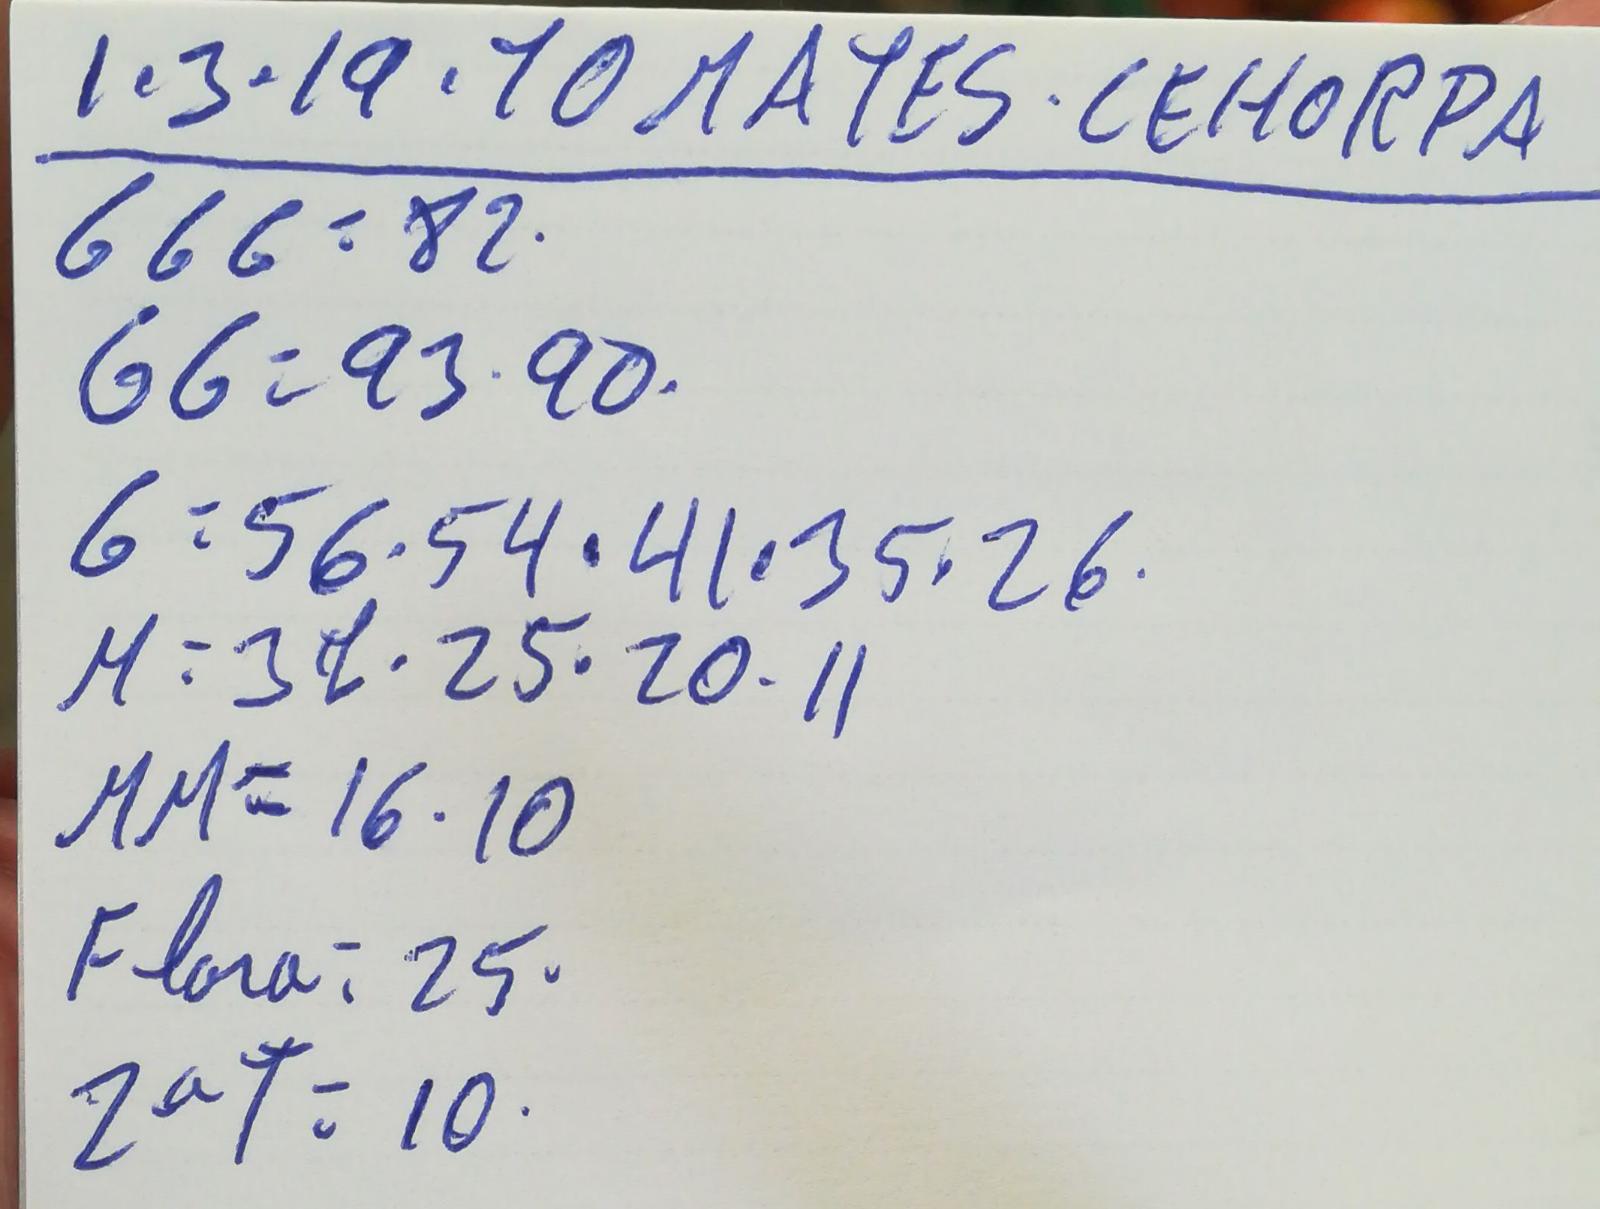 1·3·19·TOMATES·CEHORPA
GGG=82.
GG=93·90.
G=56·54·41·35·26.
M=32·25·20·11
MM=16·10
Flora=25.
2aT=10.